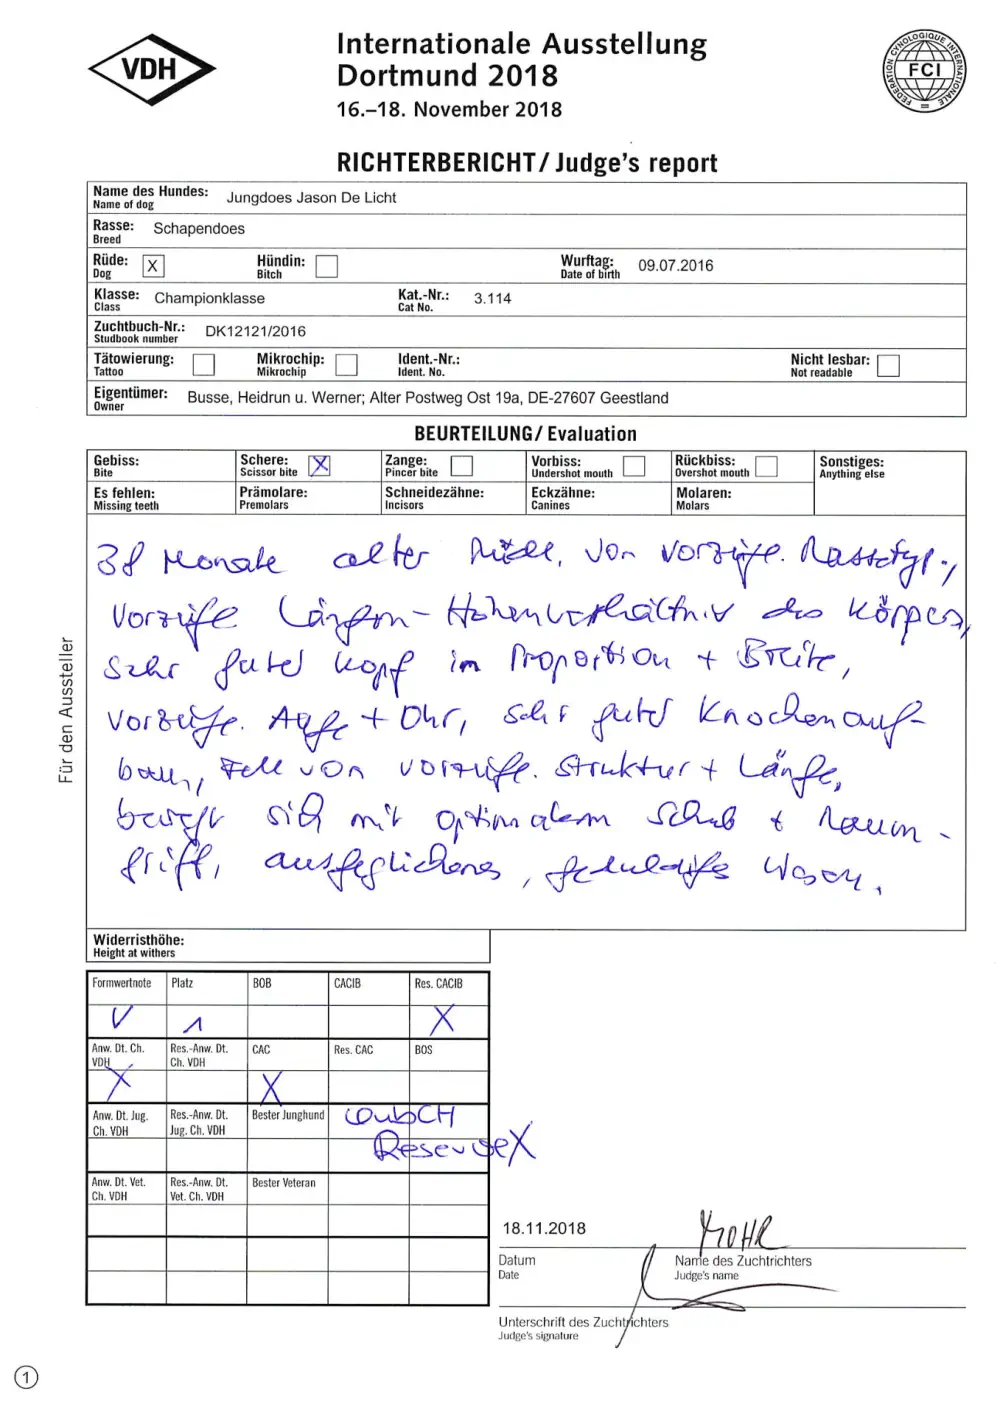 VDH
Internationale Ausstellung
Dortmund 2018
16.–18. November 2018
FEDERATION CYNOLOGIQUE INTERNATIONALE
FCI
RICHTERBERICHT/Judge's report
Name des Hundes: Jungdoes Jason De Licht
Name of dog
Rasse: Schapendoes
Breed
Rüde: X Hündin: Wurftag: 09.07.2016
Dog Bitch Date of birth
Klasse: Championklasse Kat.-Nr.: 3.114
Class Cat No.
Zuchtbuch-Nr.: DK12121/2016
Studbook number
Tätowierung: Mikrochip: Ident.-Nr.: Nicht lesbar:
Tattoo Mikrochip Ident. No. Not readable
Eigentümer: Busse, Heidrun u. Werner; Alter Postweg Ost 19a, DE-27607 Geestland
Owner
BEURTEILUNG/Evaluation
Gebiss: Schere: X Zange: Vorbiss: Rückbiss: Sonstiges:
Bite Scissor bite Pincer bite Undershot mouth Overshot mouth Anything else
Es fehlen: Prämolare: Schneidezähne: Eckzähne: Molaren:
Missing teeth Premolars Incisors Canines Molars
Monate alter Rüde, von vorzügl. Rassetyp,
vorzügl. Längen-Höhenverhältnis des Körpers,
sehr guter Kopf in Proportion + Breite,
vorzügl. Auge + Ohr, sehr guter Knochenauf-
bau, Fell von vorzügl. Struktur + Länge,
bewegt sich mit optimalem Schub + Raum-
griff, ausgeglichenes, geduldiges Wesen.
Für den Aussteller
Widerristhöhe:
Height at withers
Formwertnote Platz BOB CACIB Res. CACIB
V 1 X
Anw. Dt. Ch. VDH Res.-Anw. Dt. Ch. VDH CAC Res. CAC BOS
X X
Anw. Dt. Jug. Ch. VDH Res.-Anw. Dt. Jug. Ch. VDH Bester Junghund ClubCH
Reserve X
Anw. Dt. Vet. Ch. VDH Res.-Anw. Dt. Vet. Ch. VDH Bester Veteran
18.11.2018 MOHR
Datum Name des Zuchtrichters
Date Judge's name
Unterschrift des Zuchtrichters
Judge's signature
1